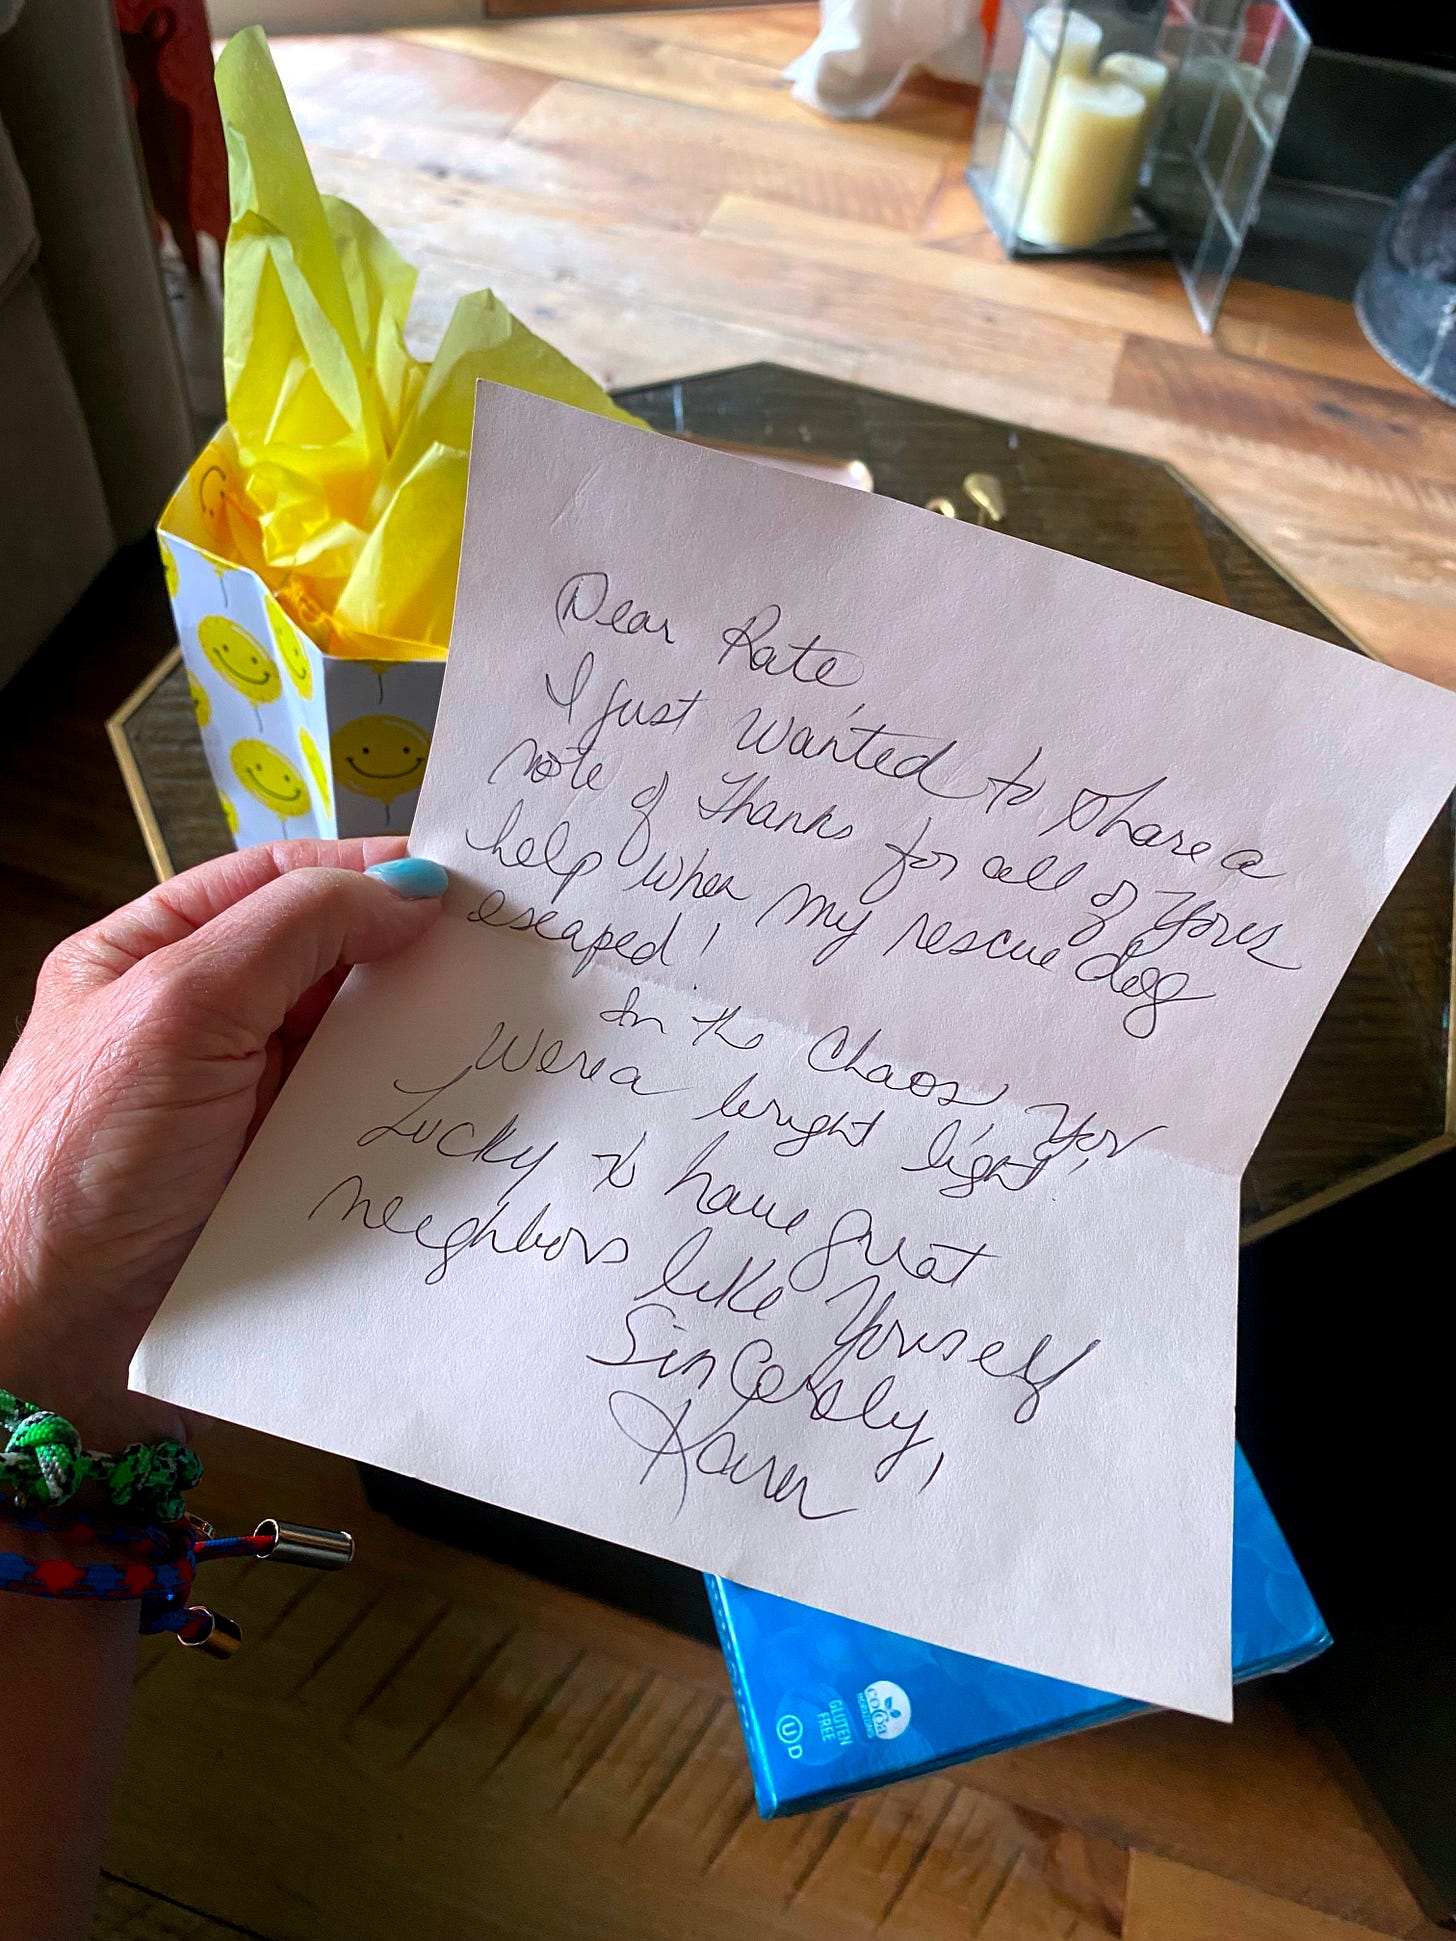 Dear Kate,
I just wanted to share a
note of thanks for all of yours
help when my rescue dog
escaped!
In the chaos, you
were a bright light!
Lucky to have great
neighbors like yourself
Sincerely,
Karen
cocoa
HORIZONS
GLUTEN
FREE
U D